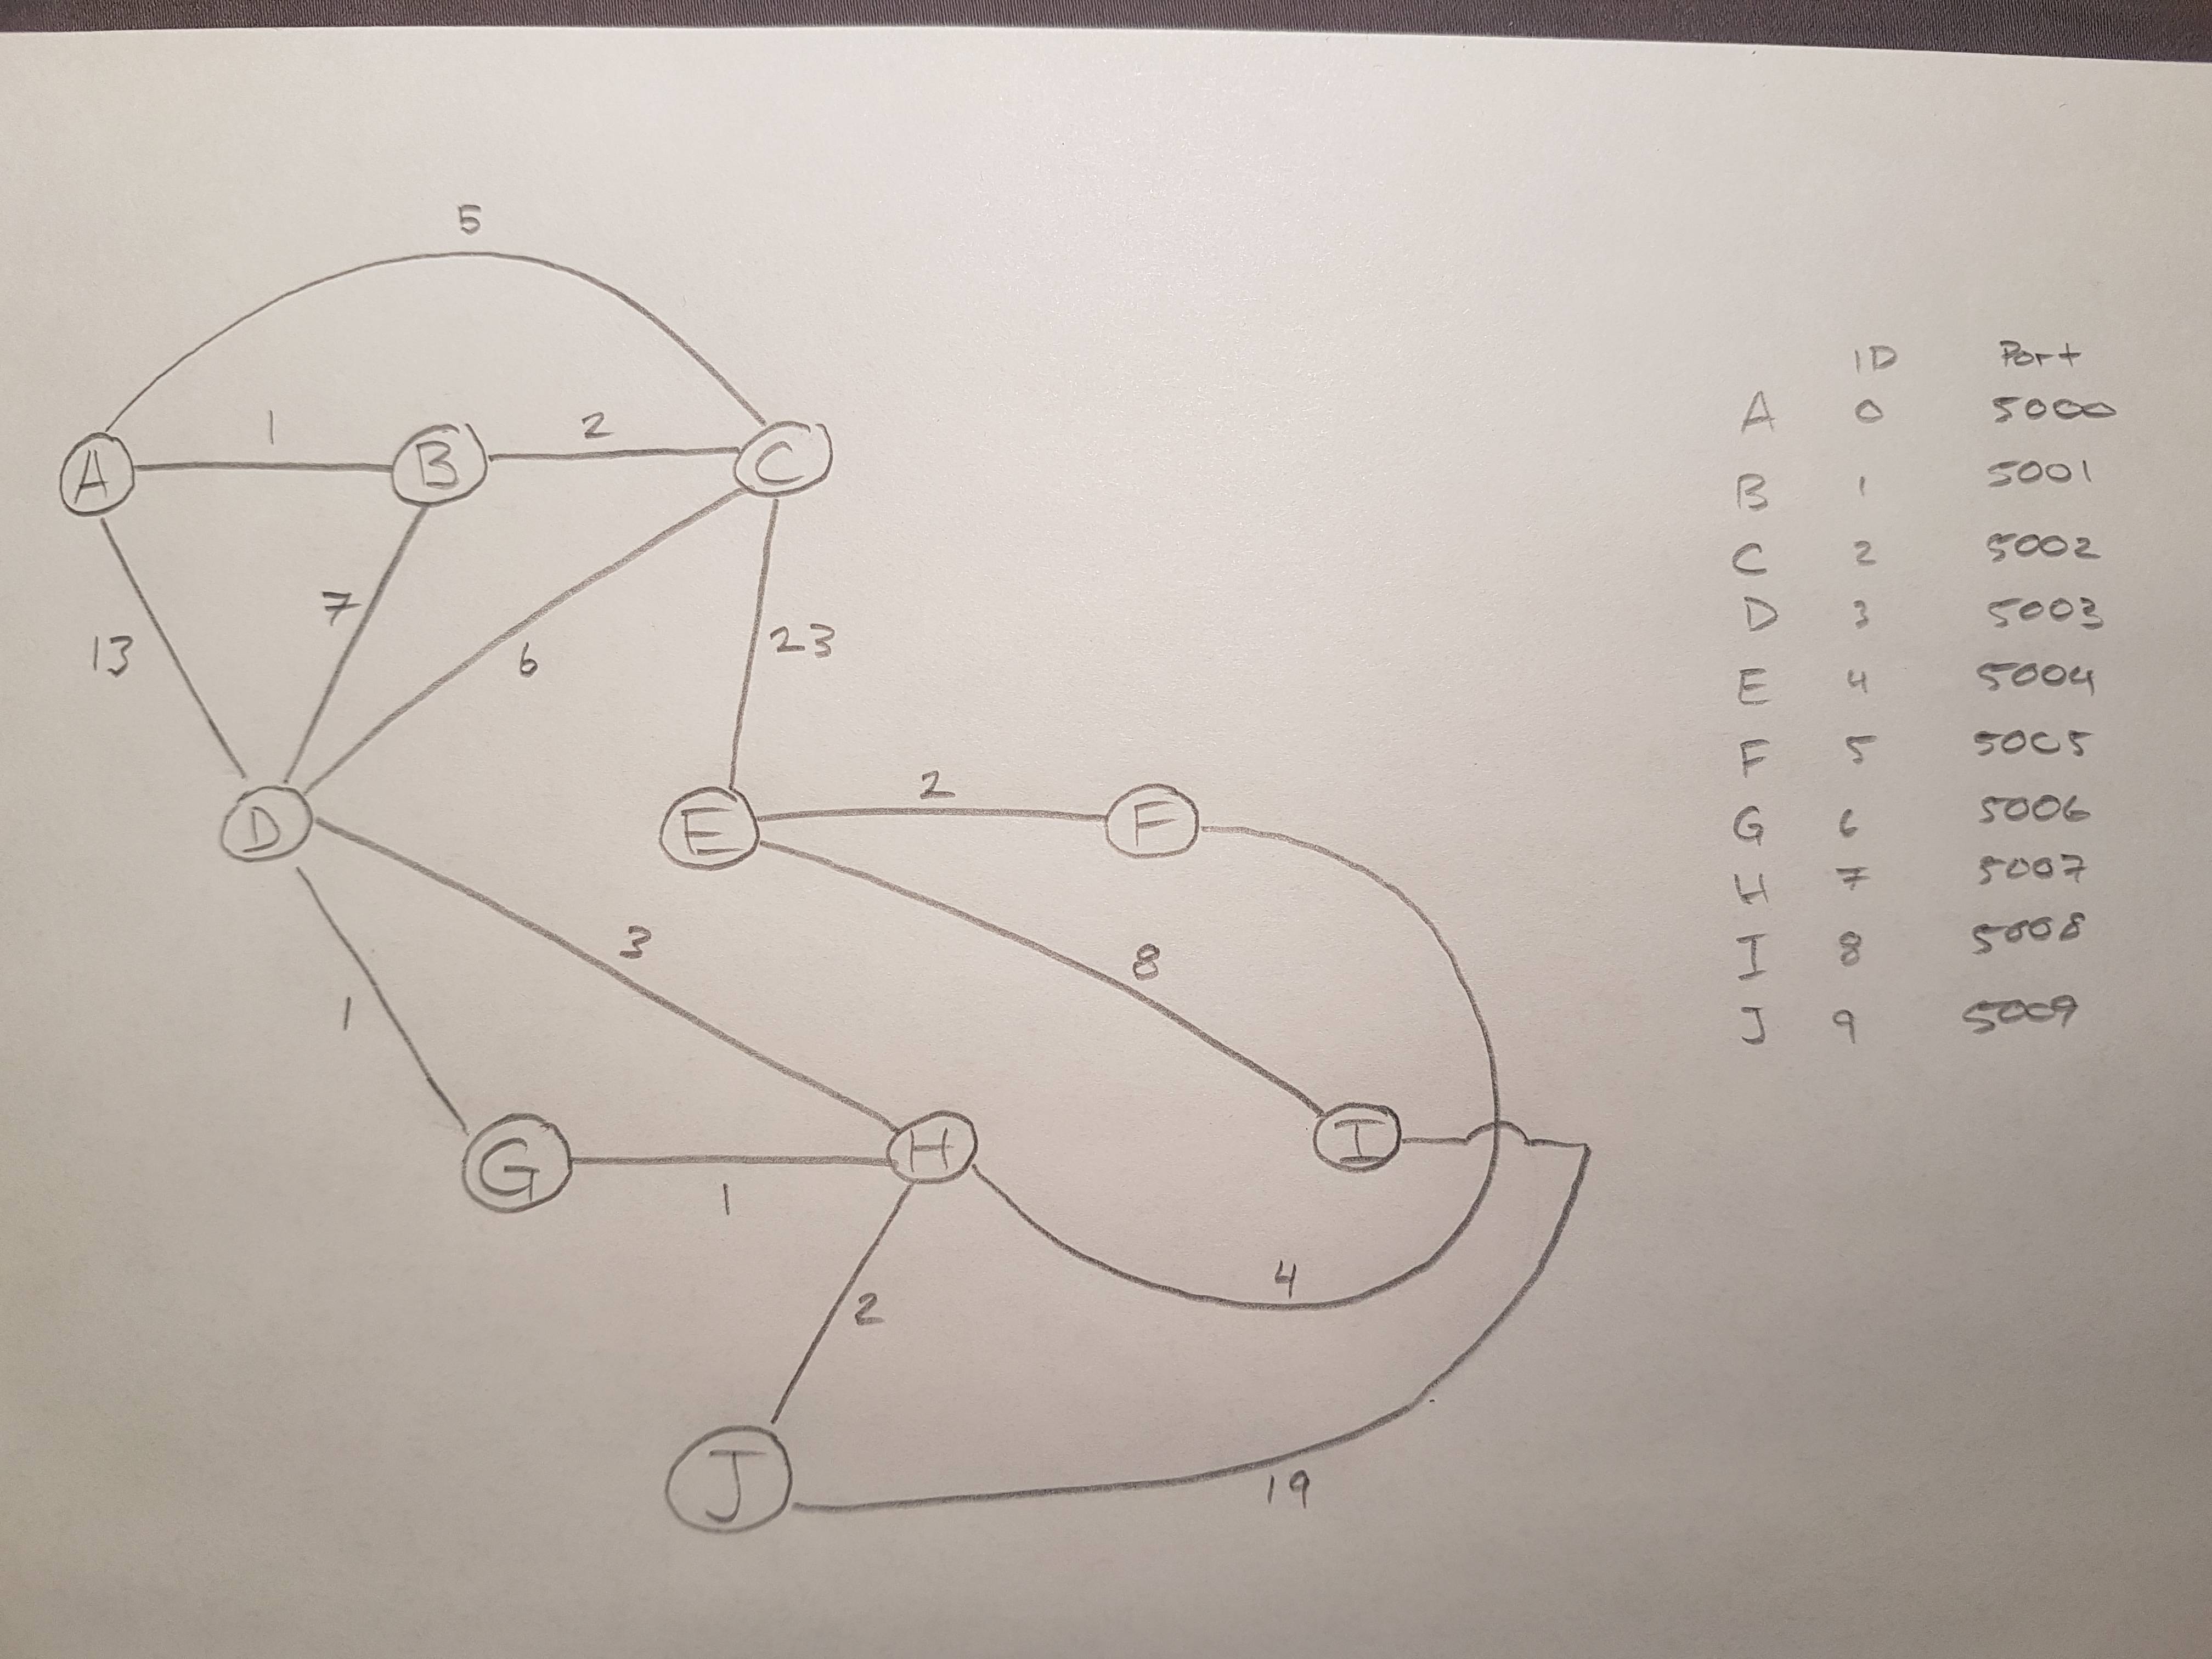 5
1
2
A
B
C
7
13
6
23
2
D
E
F
3
8
1
G
H
I
1
4
2
J
19
ID Port
A 0 5000
B 1 5001
C 2 5002
D 3 5003
E 4 5004
F 5 5005
G 6 5006
H 7 5007
I 8 5008
J 9 5009